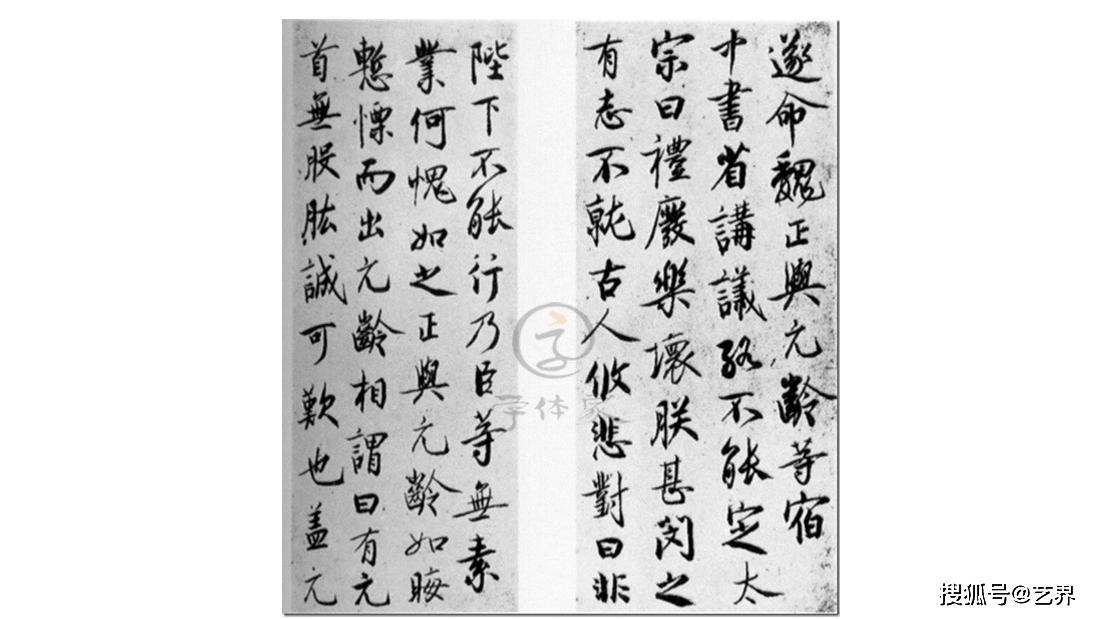 遂命魏正與元齡等宿
中書省講議終不能定太
宗曰禮廢樂壞朕甚閔之
有志不就古人攸悲對曰非
陛下不能行乃臣等無素
業何愧如之正與元齡如晦
慙慄而出元齡相謂曰有元
首無股肱誠可歎也盖元
字体家
搜狐号@艺界